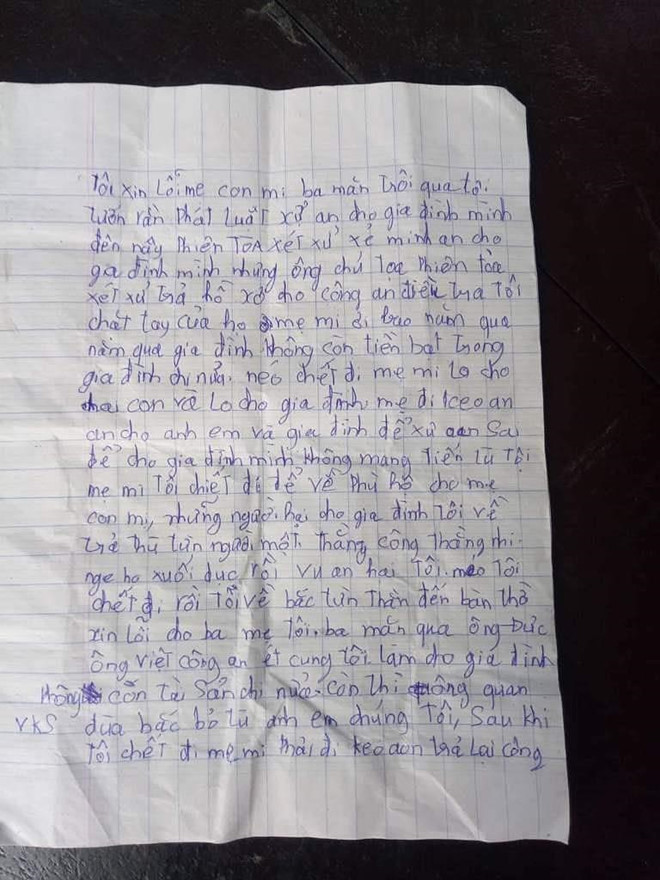 Tôi xin lỗi mẹ con mi ba măn trôi qua tôi
luôn rần phát luật xử an cho gia đình mình
đến nây phiên TOA XÉT XỬ xẻ minh an cho
gia đình mình nhưng ông chủ toạ phiên tòa
xét xử trả hồ xơ cho công an điều tra Tôi
chất tay của họ mẹ mi ơi bao năm qua
năm qua gia đình không con tiền bạt trong
gia đình chi nửa. néo chết đi mẹ mi lo cho
hai con và lo cho gia đình mẹ đi keo an
an cho anh em và gia đình để xử oan Sa
để cho gia đình mình không mang tiến tù tội
mẹ mi Tôi chiết đi để về phù hồ cho mẹ
con mi, những người hại cho gia đình tôi về
trả thù từn người một. thằng công thằng nhi
nge họ xuối dục rồi vu an hai Tôi. méo Tôi
chết đi rồi Tôi về bắc từn thằn đến bàn thờ
xin lỗi cho ba mẹ tôi. ba măn qua ông Đức
ông việt công an ét cung tôi. làm cho gia đình
không còn tà sản chi nửa. còn thì ông quan
VKS dùa bắc bỏ tù anh em chúng Tôi, Sau khi
Tôi chết đi mẹ mi phải đi keo aon trả lại công